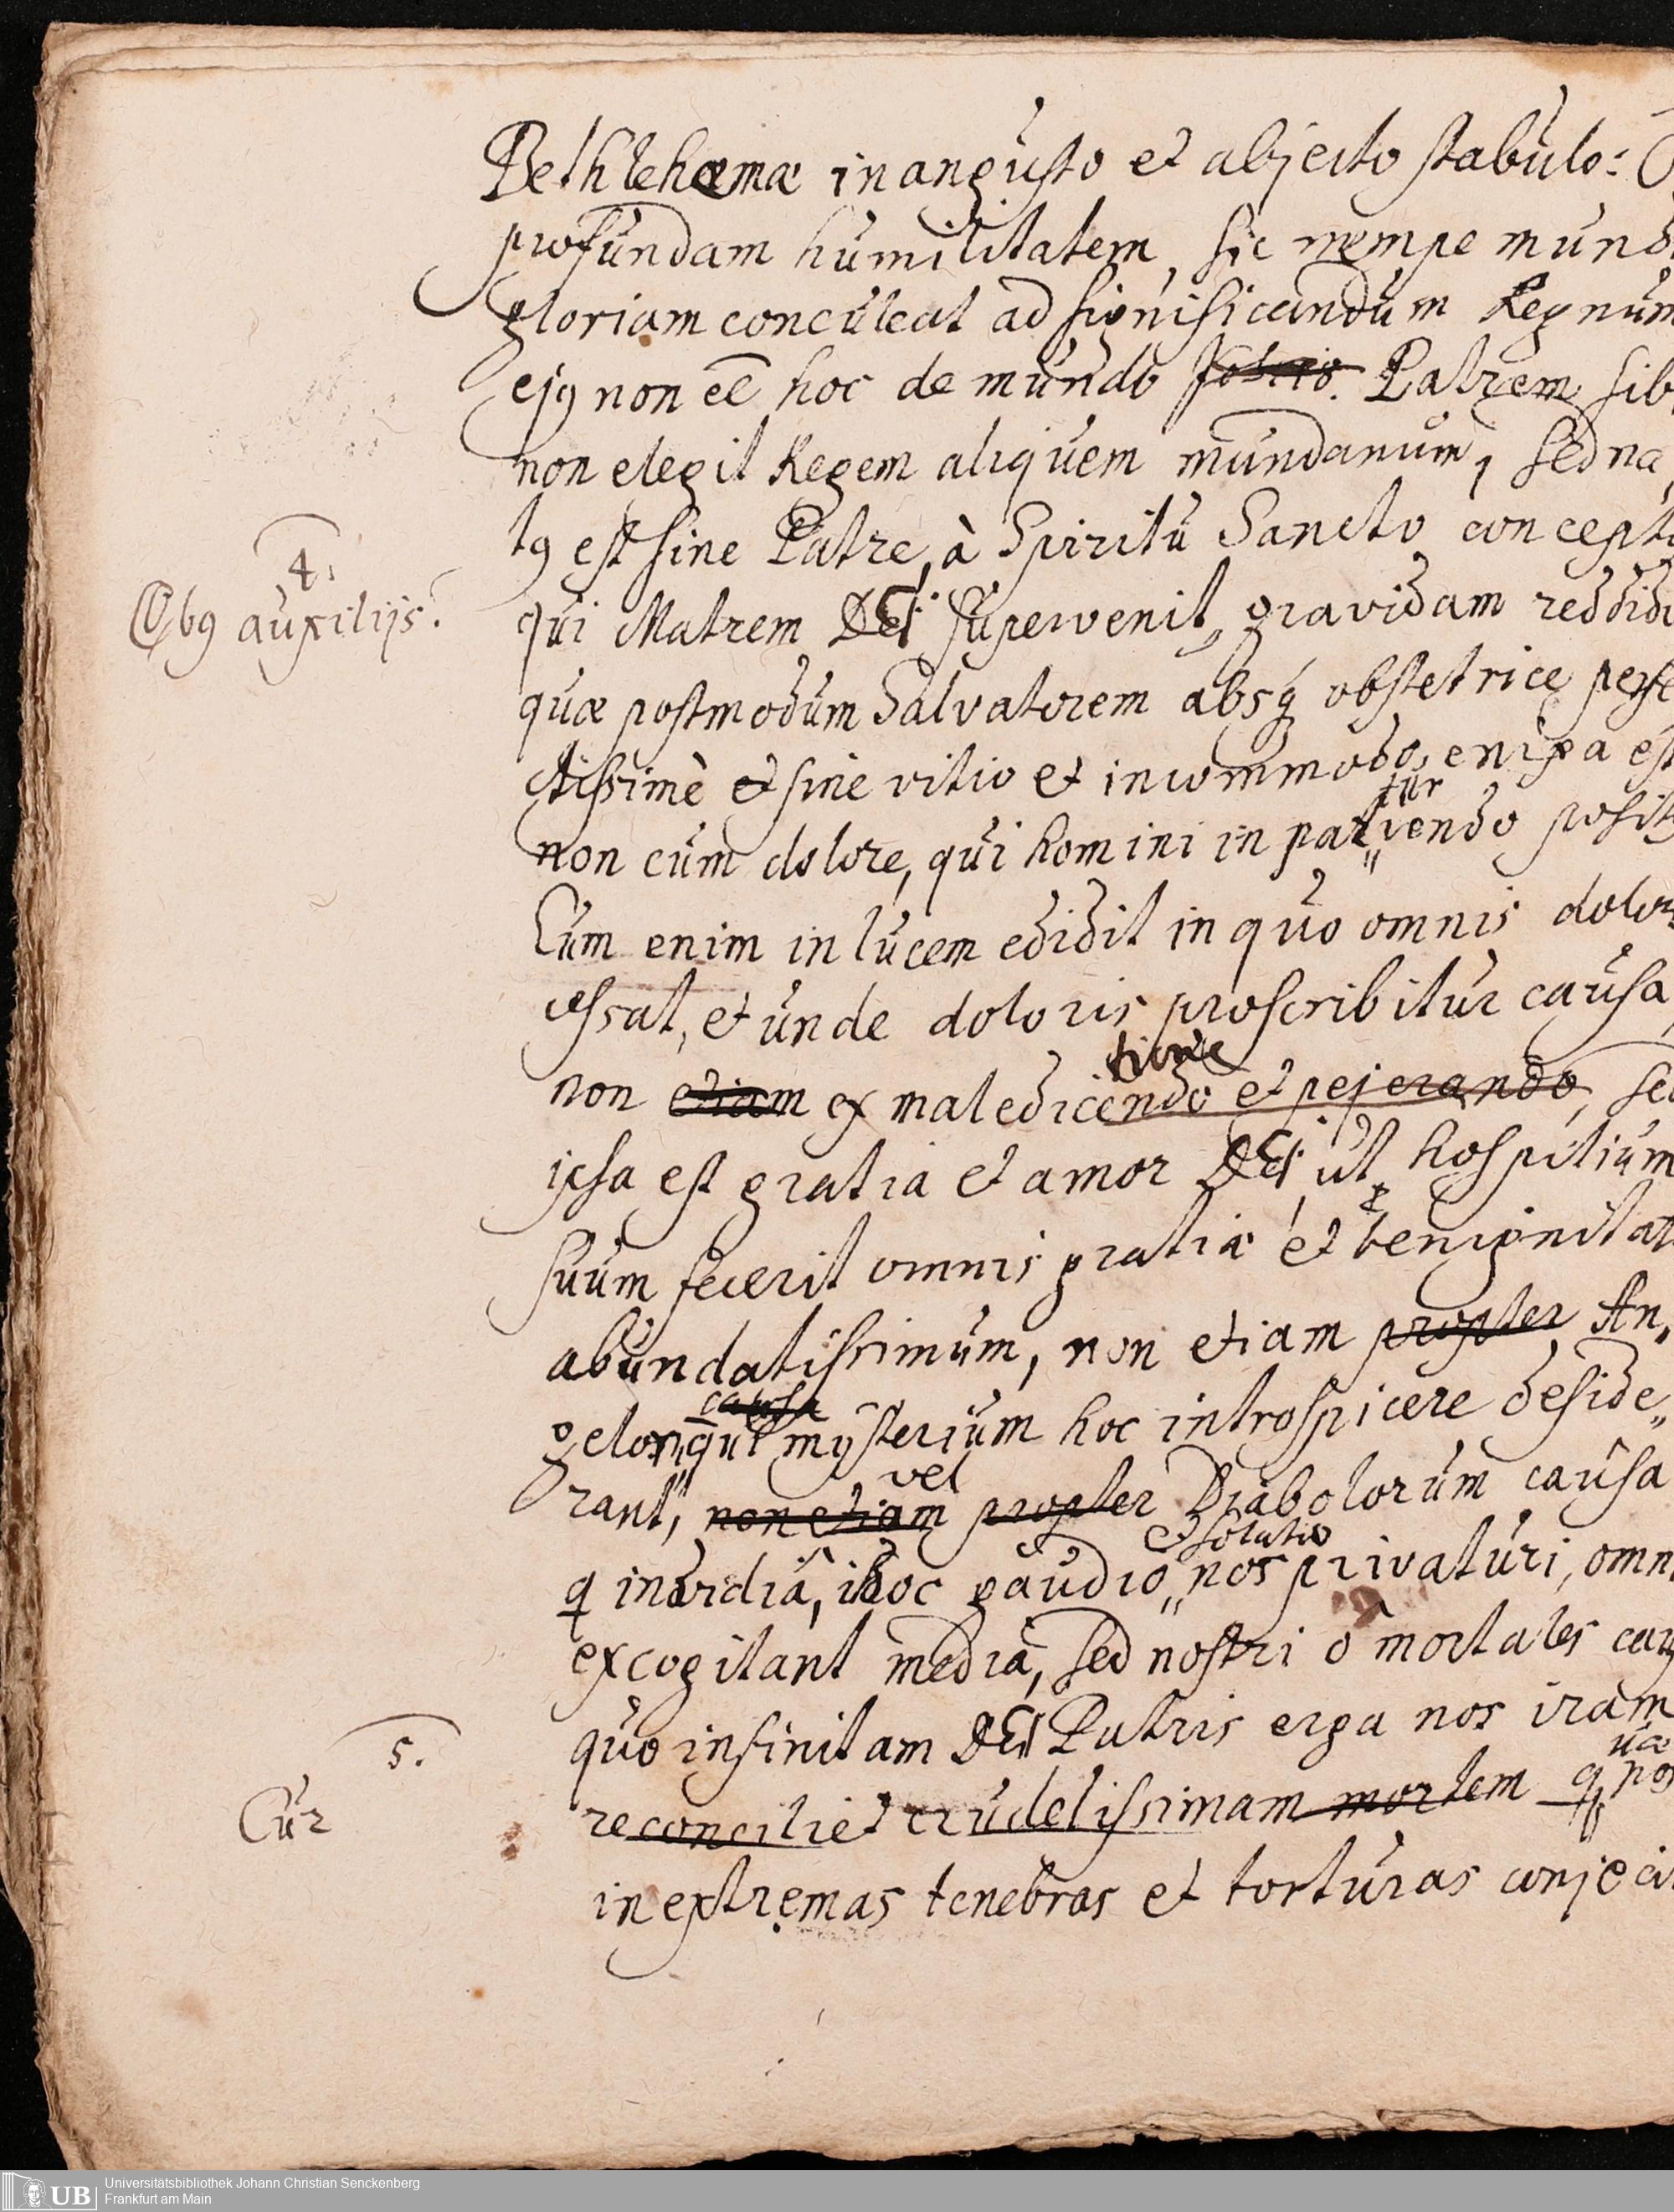 Bethlehemæ in angusto et abjecto stabulo:
profundam humilitatem, sic nempe mund
gloriam conculcat ad significandum Regnum
ejꝯ non eē hoc de mundo Patrem sib
non elegit Regem aliquem mundanum, sed na
tꝯ est sine Patre, à Spiritu Sancto concept
4.
Qbꝯ auxilijs?
qui Matrem DEI supervenit, gravidam reddidi
quæ postmodum Salvatorem absq̃ obstetrice perfe
ctissimè et sine vitio et incommodo, enixa est
tur
non cum dolore, qui homini in pariendo posit
Eum enim in lucem edidit in quo omnis dolor
cessat, et unde doloris proscribitur causa,
tione
non etiam ex maledicendo et pejerando, sed
ipsa est gratia et amor DEI, ut hospitium
suum fecerit omnis gratiæ et benignitat
abundatissimum, non etiam propter An,
causa
gelor, qui mÿsterium hoc introspicere deside„
vel
rant, non etiam propter Diabolorum causâ
et solatio
gaudio nos privaturi, omn
excogitant media, sed nostri ô mortales cau
quo infinitam DEI Patris erga nos iram
uæ
5.
Cur
reconciliet crudelissimam mortem q nos
in extremas tenebras et torturas conjeci
Universitätsbibliothek Johann Christian Senckenberg
UB Frankfurt am Main